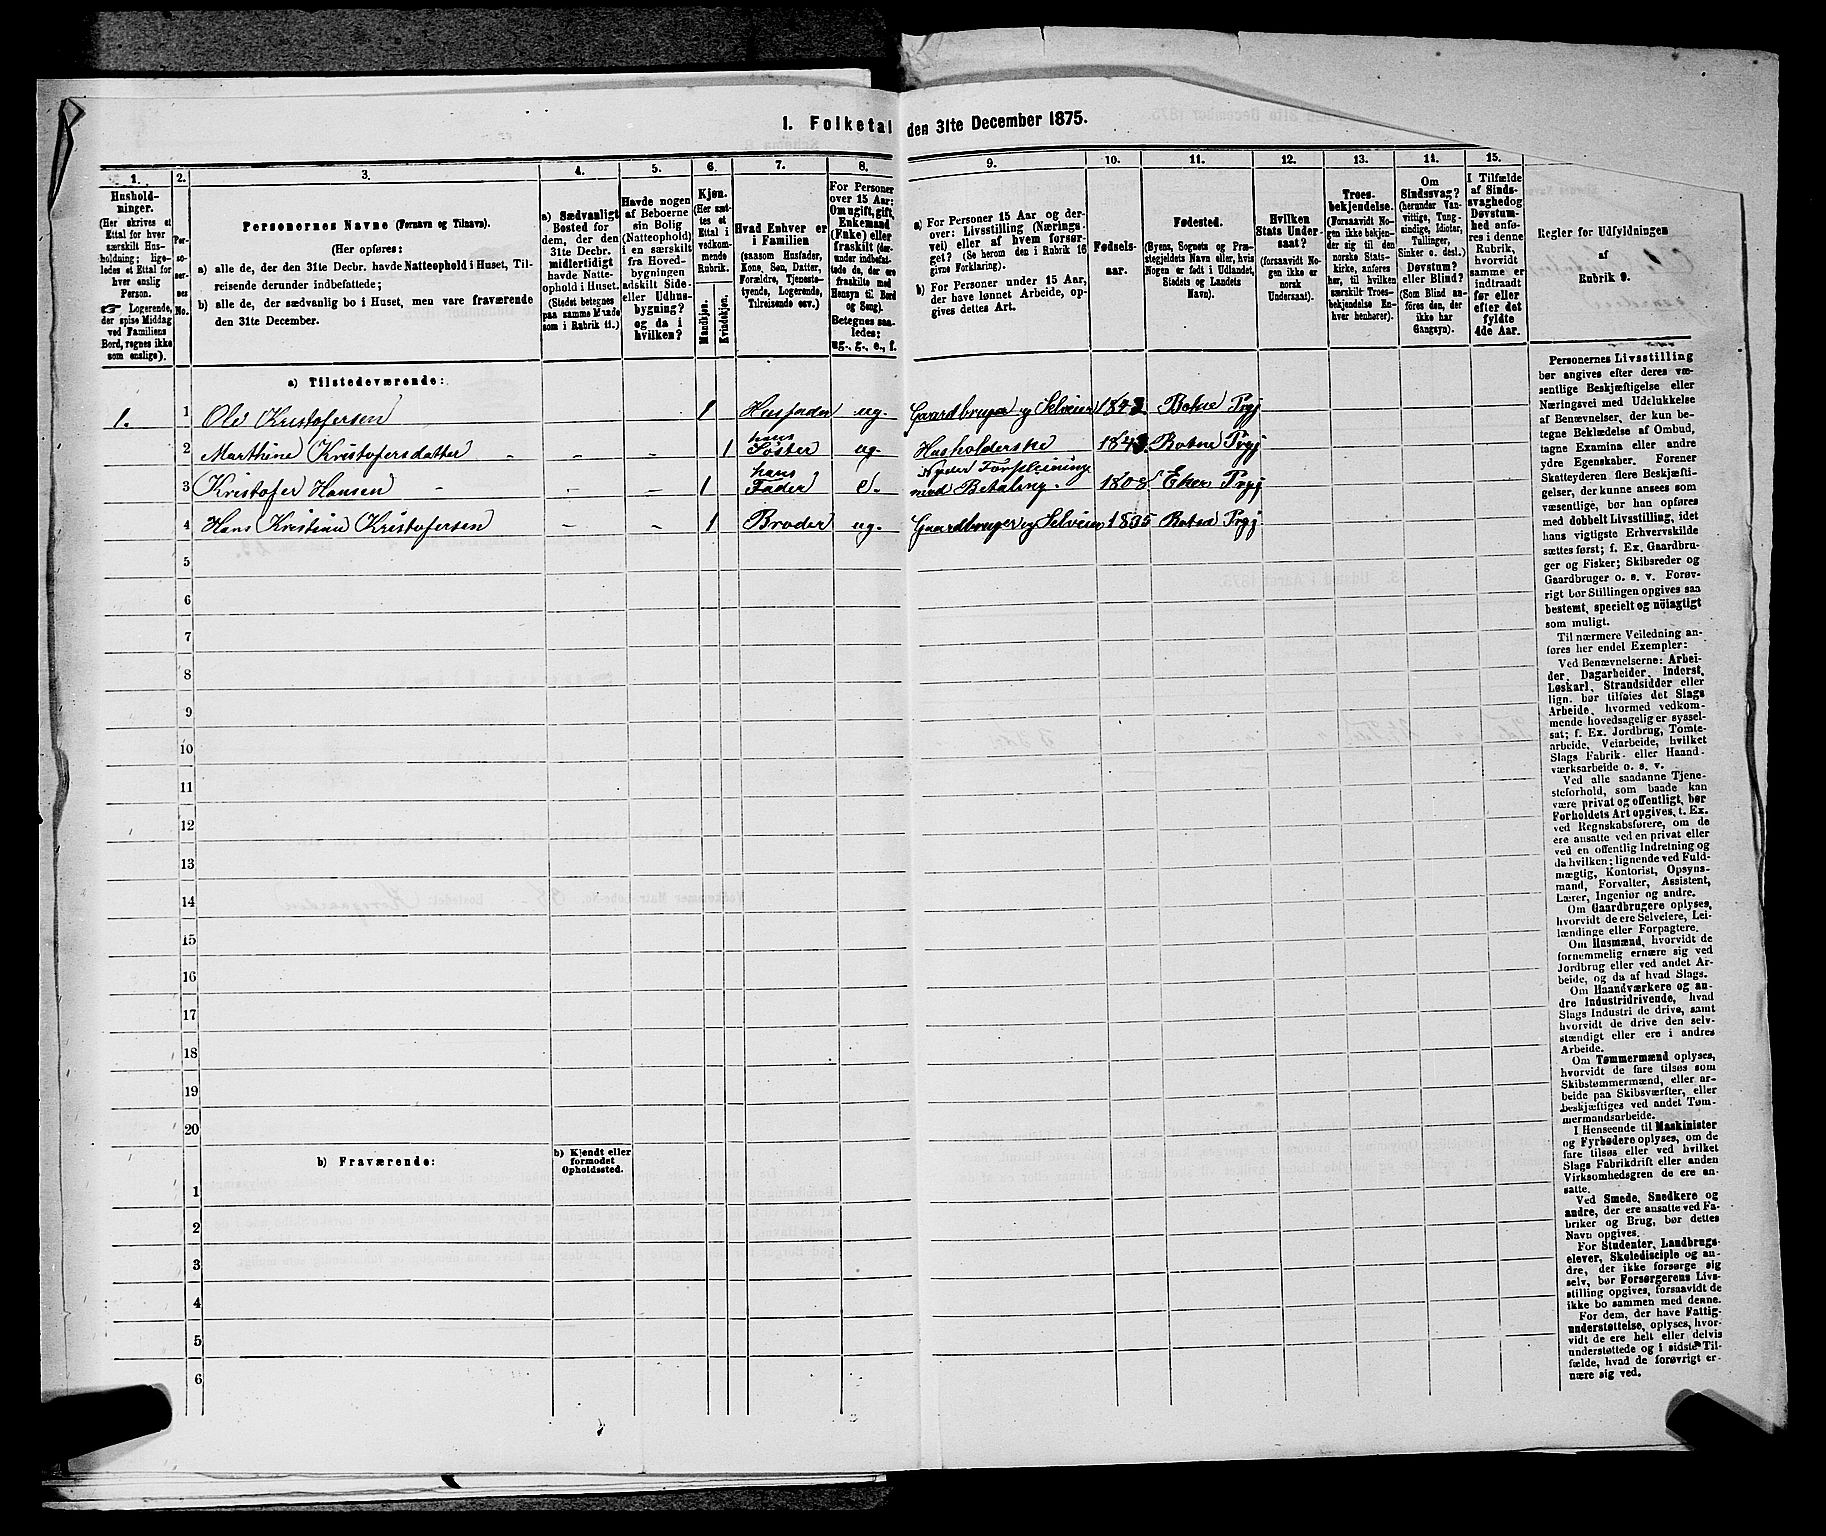 1. Folketal den 31te December 1875.
1. 2. 3. 4. 5. 6. 7. 8. 9. 10. 11. 12. 13. 14. 15.
Hushold-
ninger.
(Her skrives et
Ettal for hver
særskilt Hus-
holdning; lige-
ledes et Ettal for
hver enslig
Person.
☞ Logerende,
der spise Middag
ved Familiens
Bord, regnes ikke
som enslige).
Per-
so-
ner-
nes
No.
Personernes Navne (Fornavn og Tilnavn).
(Her opføres:
a) alle de, der den 31te Decbr. havde Natteophold i Huset, Til-
reisende derunder indbefattede;
b) alle de, der sædvanlig bo i Huset, men vare fraværende
den 31te December.
a) Sædvanligt
Bosted for
dem, der den
31te Decbr.
midlertidigt
havde Natte-
ophold i Huset.
(Stedet betegnes
paa samme Maade
som i Rubrik 11.)
Havde nogen
af Beboerne
sin Bolig
(Natteophold)
i en særskilt
fra Hoved-
bygningen
adskilt Side-
eller Udhus-
bygning?
og da i
hvilken?
Kjøn.
(Her sæt-
tes et
Ettal i
vedkom-
mende
Rubrik.
Mandkjøn.
Kvindekjøn.
Hvad Enhver er
i Familien
(saasom Husfader,
Kone, Søn, Datter,
Forældre, Tjeneste-
tyende, Logerende,
Tilreisende osv.)
For Personer
over 15 Aar:
Om ugift, gift,
Enkemand
(Enke) eller
fraskilt (der-
under indbefat-
tede de, der ere
fraskilte med
Hensyn til Bord
og Seng).
Betegnes saa-
ledes:
ug., g., e., f.
a) For Personer 15 Aar og der-
over: Livsstilling (Nærings-
vei) eller af hvem forsør-
get. (Se herom den i Rubrik 16
givne Forklaring).
b) For Personer under 15 Aar,
der have lønnet Arbeide, op-
gives dettes Art.
Fødsels-
aar.
Fødested.
(Byens, Sognets og Præ-
stegjeldets Navn eller, hvis
Nogen er født i Udlandet,
Stedets og Landets
Navn).
Hvilken
Stats Under-
saat?
(forsaavidt No-
gen ikke er
norsk
Undersaat).
Troes-
bekjendelse.
(Forsaavidt No-
gen ikke bekjen-
der sig til den
norske Stats-
kirke, anføres
her, til hvilken
særskilt Troes-
bekjendelse En-
hver henhører).
Om
Sindssvag?
(herunder Van-
vittige, Tung-
sindige, Idiotar,
Tullinger,
Sinker o. desl.)
Døvstum?
eller Blind?
(Som Blind an-
føres den, der
ikke har
Gangsyn).
I Tilfælde
af Sinds-
svaghed og
Døvstum-
hed anfø-
res i denne
Rubrik,
hvorvidt
samme er
indtraadt
før eller
efter det
fyldte
4de Aar.
Regler for Udfyldningen
af
Rubrik 9.
a) Tilstedeværende:
1. 1 Ole Kristofersen 1 Husfader ug. Gaardbruger og Selveier 1843 Botne Prgj
2 Marthine Kristofersdatter - - 1 hans Søster ug. Husholderske 1843 Botne Prgj
3 Kristofer Hansen - - - 1 hans Fader e. Nyder Forpleining mod Betaling. 1808 Eker Prgj
4 Hans Kristian Kristofersen - - 1 Broder ug. Gaardbruger og Selveier 1835 Botne Prgj
5
6
7
8
9
10
11
12
13
14
15
16
17
18
19
20
b) Fraværende:
b) Kjendt eller
formodet
Opholdssted.
1
2
3
4
5
6
Personernes Livsstilling
bør angives efter deres væ-
sentlige Beskjæftigelse eller
Næringsvei med Udelukkelse
af Benævnelser, der kun be-
tegne Beklædelse af Ombud,
tagne Examina eller andre
ydre Egenskaber. Forener
Skatteyderen flere Beskjæfti-
gelser, der kunne ansees som
væsentlige, bør han opføres
med dobbelt Livsstilling, idet
hans vigtigste Erhvervskilde
sættes først; f. Ex. Gaardbru-
ger og Fisker; Skibsreder og
Gaardbruger o. s. v. Forøv-
rigt bør Stillingen opgives saa
bestemt, specielt og nøiagtigt
som muligt.
Til nærmere Veiledning an-
føres her endel Exempler:
Ved Benævnelserne: Arbei-
der, Dagarbeider, Inderst,
Løskarl, Strandsidder eller
lign. bør tilføies det Slags
Arbeide, hvormed vedkom-
mende hovedsagelig er syssel-
sat; f. Ex. Jordbrug, Tomte-
arbeide, Veiarbeide, hvilket
Slags Fabrik- eller Haand-
værksarbeide o. s. v.
Ved alle saadanne Tjene-
steforhold, som baade kan
være privat og offentligt, bør
Forholdets Art opgives, t. Ex.
ved Regnskabsførere, om de
ere ansatte ved en privat eller
ved en offentlig Indretning og
da hvilken; lignende ved Fuld-
mægtig, Kontorist, Opsyns-
mand, Forvalter, Assistent,
Lærer, Ingeniør og andre.
Om Gaardbrugere oplyses,
hvorvidt de ere Selveiere, Lei-
lændinge eller Forpagtere.
Om Husmænd, hvorvidt de
fornemmelig ernære sig ved
Jordbrug eller ved andet Ar-
beide, og da af hvad Slags.
Om Haandværkere og an-
dre Industridrivende, hvad
Slags Industri de drive, samt
hvorvidt de drive den selv-
stændigt eller ere i andres
Arbeide.
Om Tømmermænd oplyses,
hvorvidt de fare tilsøs som
Skibstømmermænd, eller ar-
beide paa Skibsværfter, eller
beskjæftiges ved andet Tøm-
mermandsarbeide.
I Henseende til Maskinister
og Fyrbødere oplyses, om de
fare tilsøs eller ved hvilket
Slags Fabrikdrift eller anden
Virksomhedsgren de ere an-
satte.
Ved Smede, Snedkere og
andre, der ere ansatte ved Fa-
briker og Brug, bør dettes
Navn opgives.
For Studenter, Landbrugs-
elever, Skoledisciple og an-
dre, der ikke forsørge sig
selv, bør Forsørgerens Livs-
stilling opgives, forsaavidt de
ikke bo sammen med denne.
For dem, der have Fattig-
understøttelse, oplyses, hvor-
vidt de ere helt eller delvis
understøttede og i sidste Til-
fælde, hvad de forøvrigt er-
nære sig ved.